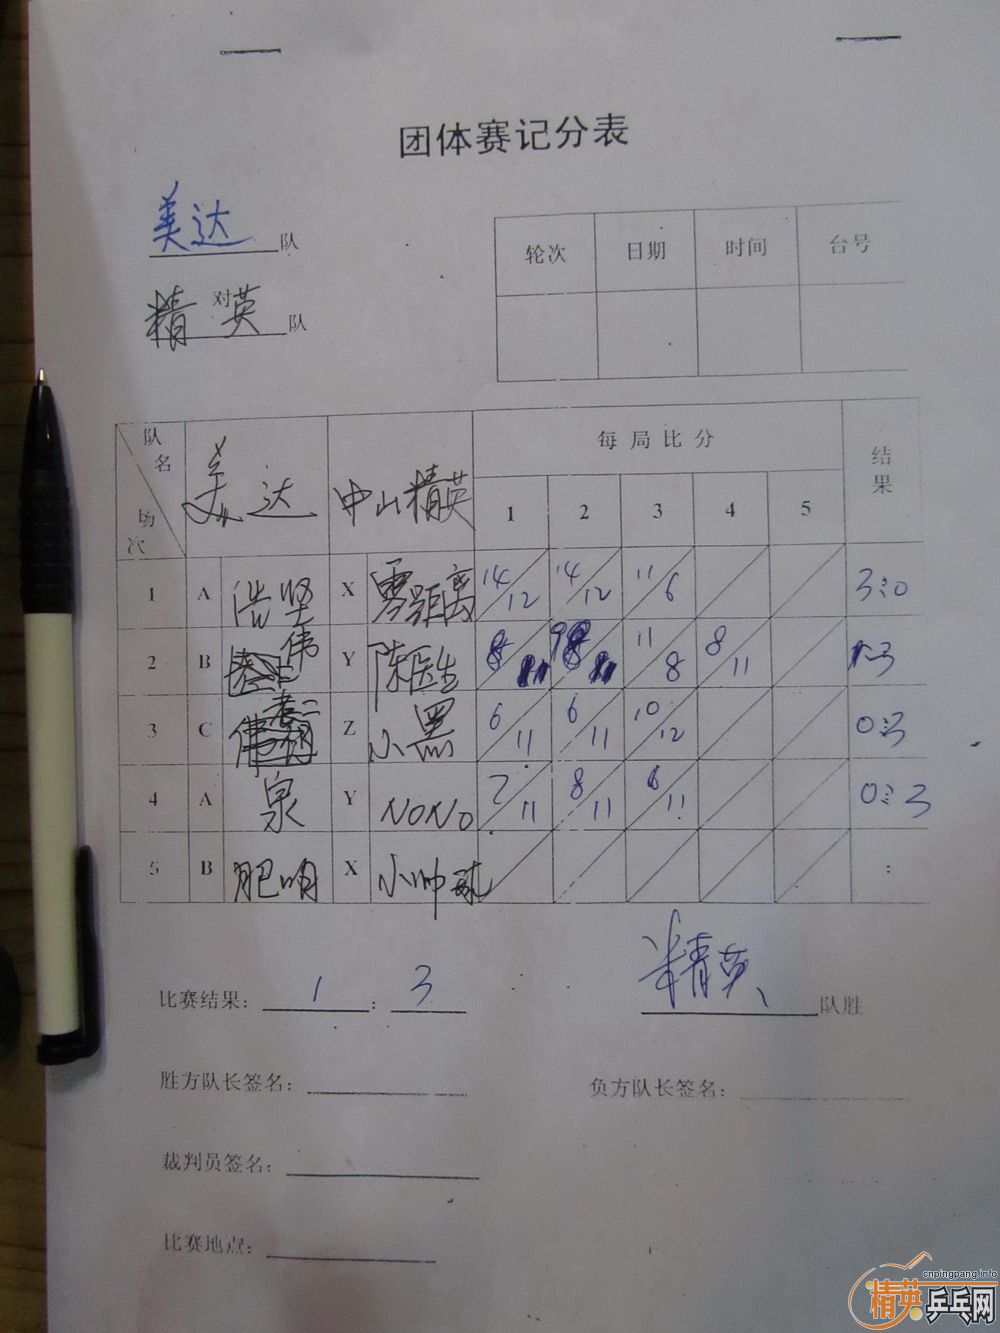 团体赛记分表
美达队
对
精英队
轮次 日期 时间 台号
队名 场次 美达 中山精英 每局比分 结果
1 2 3 4 5
1 A 浩坚 X 零距离 14/12 14/12 11/6 3:0
2 B 伟 Y 陈医生 11/8 8/11 1:3
3 C 老二 Z 小黑 6/11 6/11 10/12 0:3
4 A 泉 Y NONO 7/11 8/11 6/11 0:3
5 B 肥明 X 小帅 :
比赛结果: 1 : 3 精英队胜
胜方队长签名: 负方队长签名:
裁判员签名:
比赛地点:
cnpingpang.info
精英乒乓网